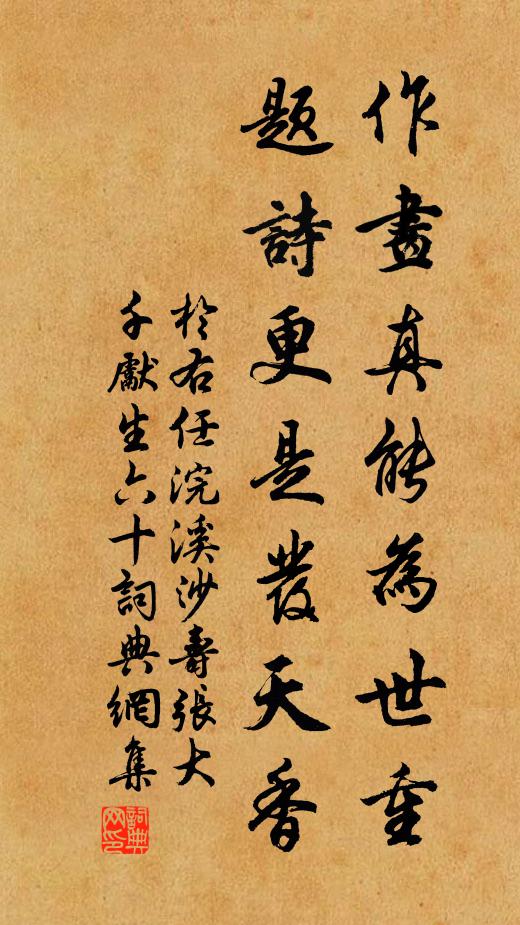 作畫真能為世重
題詩更是發天香
於右任浣溪沙壽張大
千獻生六十詞典網集
詞典网印